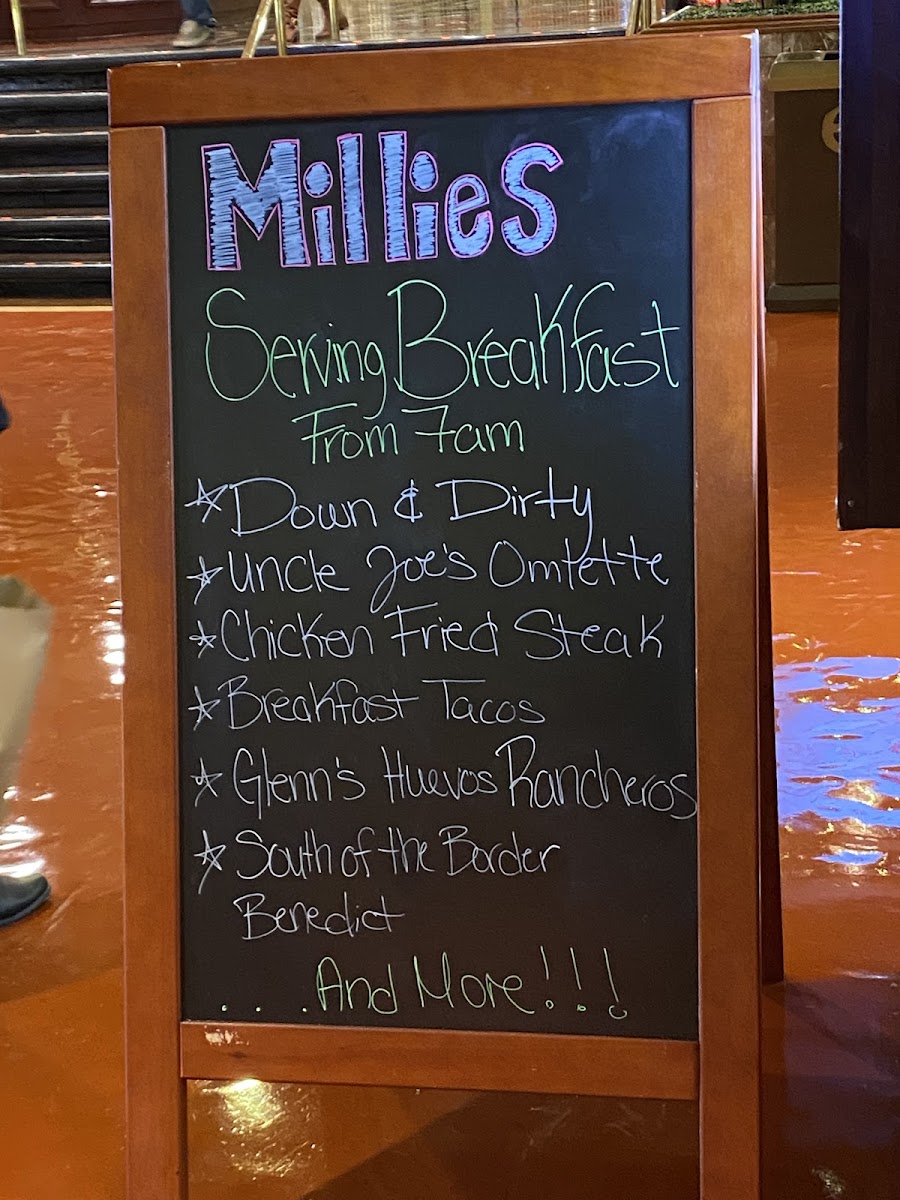 Millies
Serving Breakfast
From 7am
☆ Down & Dirty
☆ Uncle Joe's Omlette
☆ Chicken Fried Steak
☆ Breakfast Tacos
☆ Glenn's Huevos Rancheros
☆ South of the Border
Benedict
. . . . And More!!!